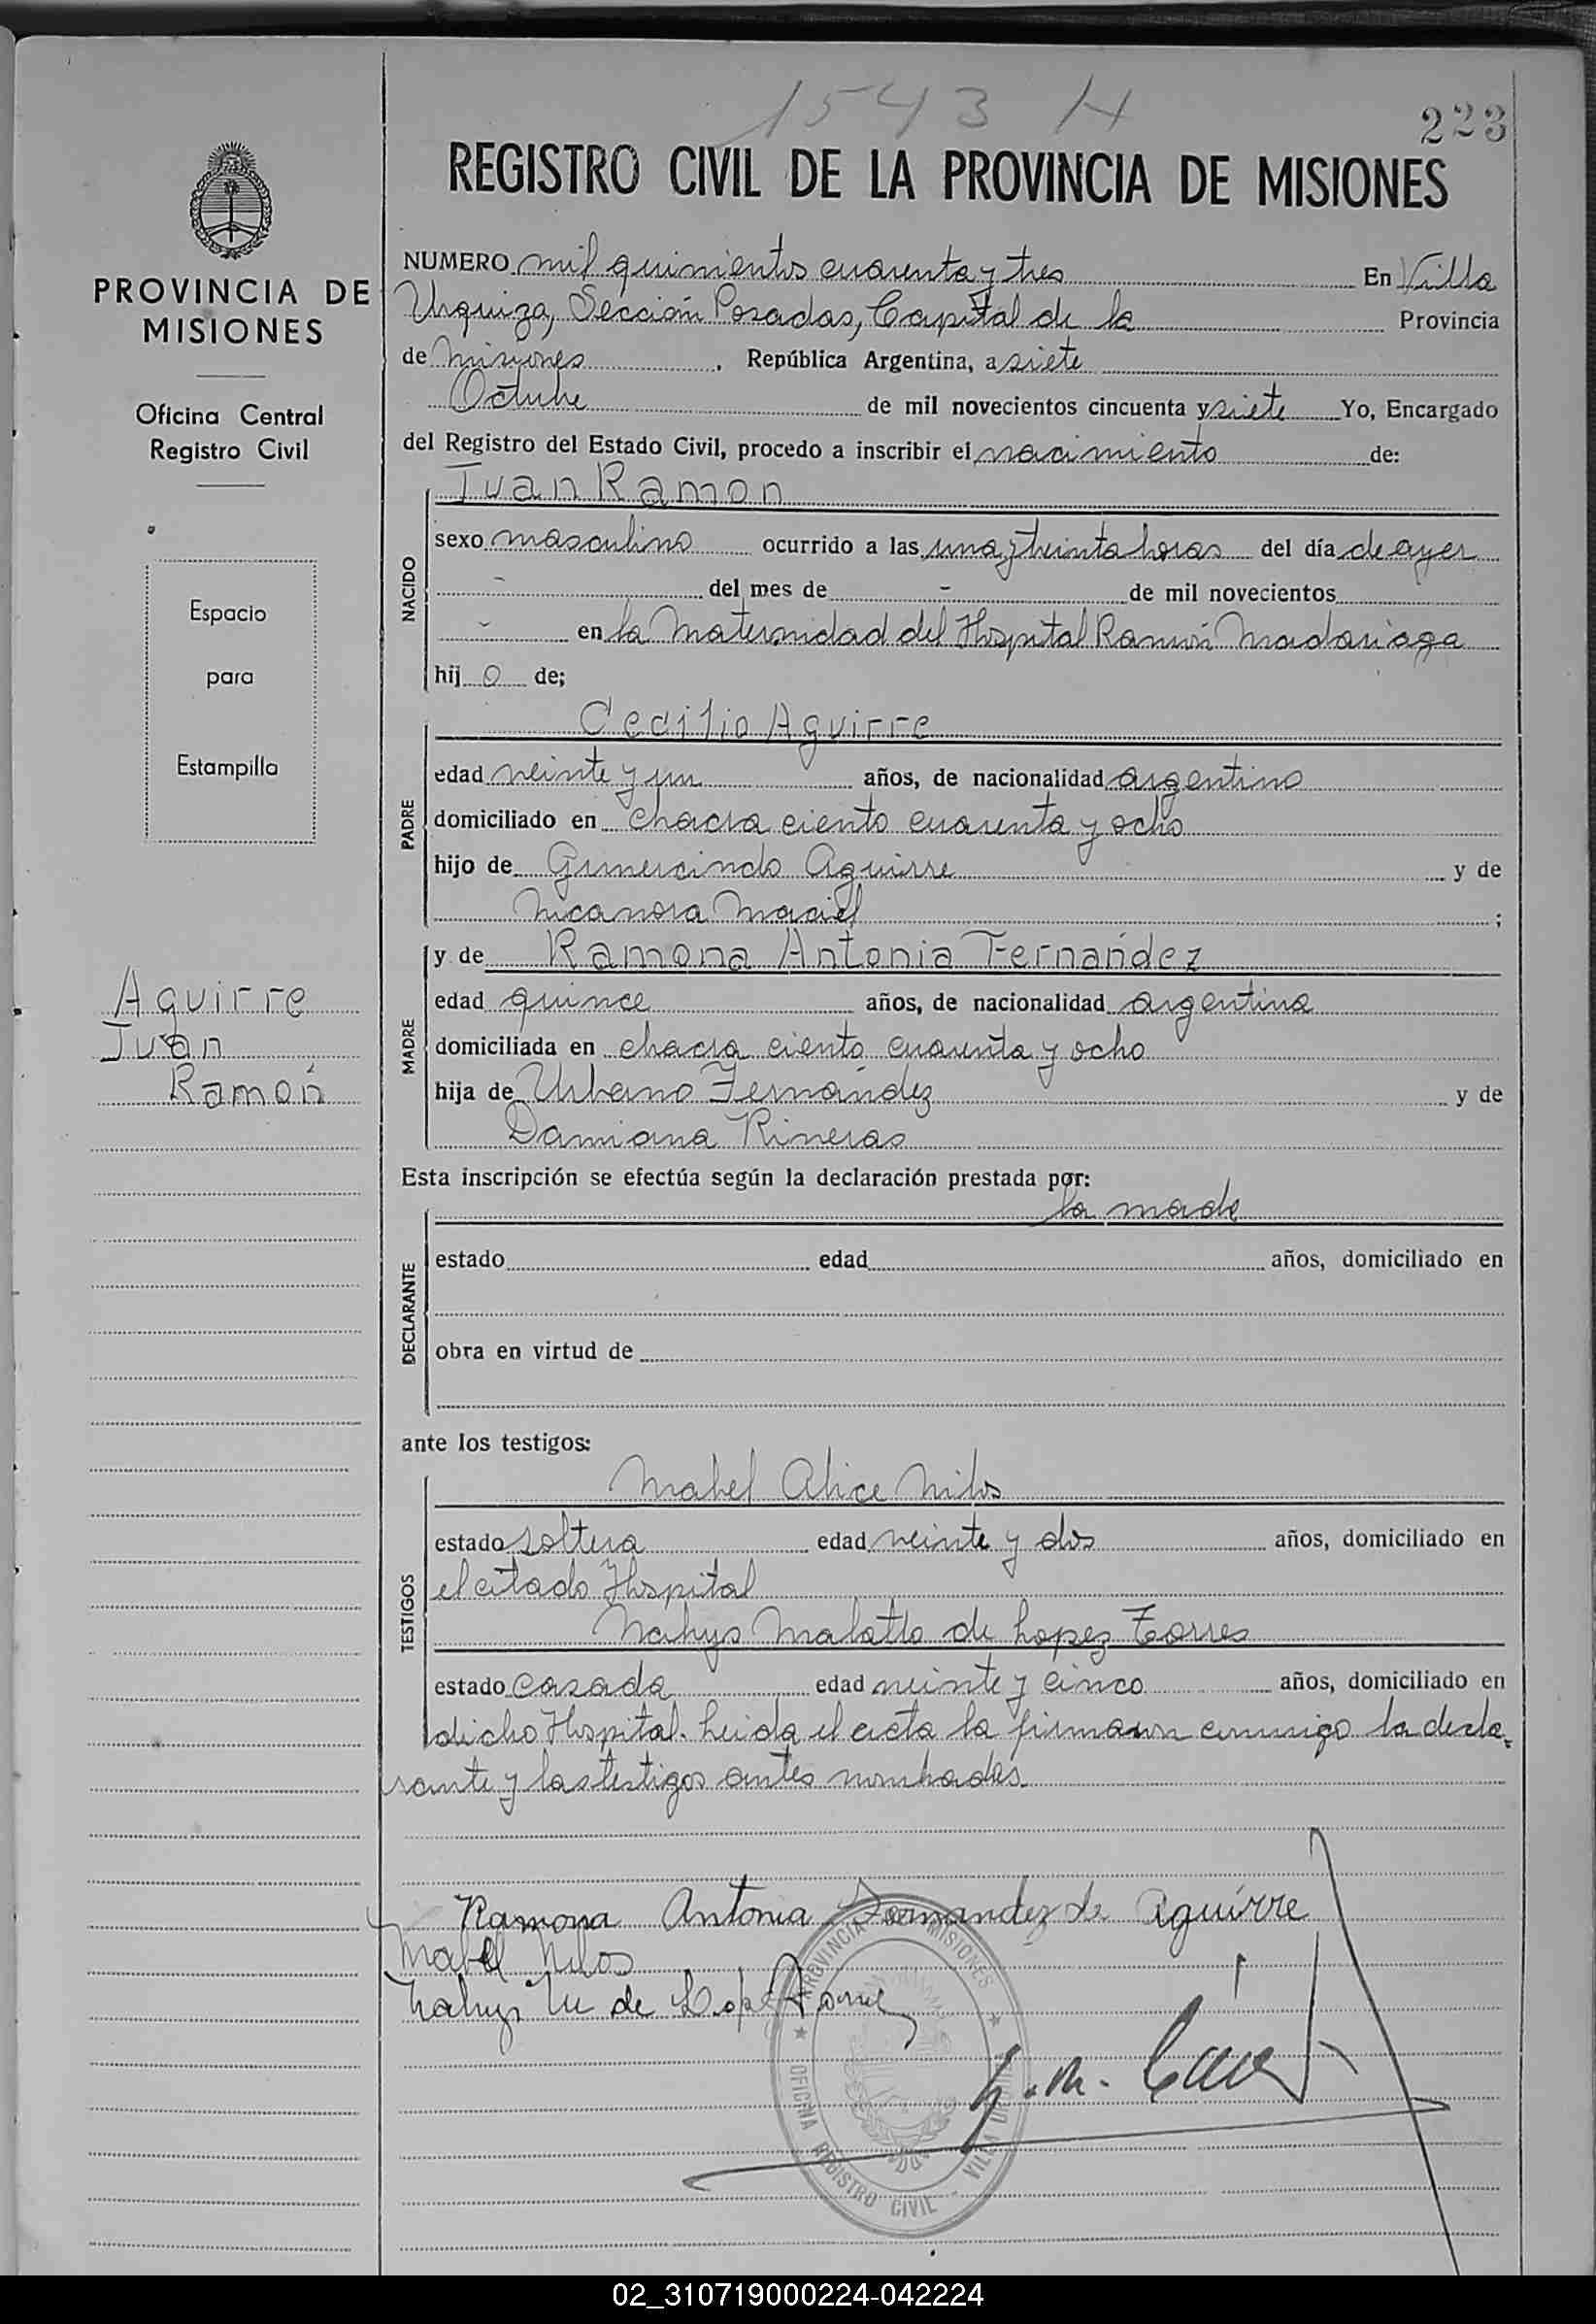 1543 H
223
REGISTRO CIVIL DE LA PROVINCIA DE MISIONES
PROVINCIA DE
MISIONES
Oficina Central
Registro Civil
Espacio
para
Estampilla
Aguirre
Juan
Ramón
NUMERO mil quinientos cuarenta y tres En Villa
Urquiza, Sección Posadas, Capital de la Provincia
de Misiones, República Argentina, a siete
Octubre de mil novecientos cincuenta y siete Yo, Encargado
del Registro del Estado Civil, procedo a inscribir el nacimiento de:
NACIDO
Juan Ramon
sexo masculino ocurrido a las una y treinta horas del día de ayer
- del mes de - de mil novecientos
- en la Maternidad del Hospital Ramón Madariaga
hij o de;
PADRE
Cecilio Aguirre
edad veinte y un años, de nacionalidad argentino
domiciliado en chacra ciento cuarenta y ocho
hijo de Gumercindo Aguirre y de
Nicanora Maciel ;
MADRE
y de Ramona Antonia Fernandez
edad quince años, de nacionalidad argentina
domiciliada en chacra ciento cuarenta y ocho
hija de Urbano Fernández y de
Damiana Riveras
Esta inscripción se efectúa según la declaración prestada por:
DECLARANTE
la madre
estado edad años, domiciliado en
obra en virtud de
ante los testigos:
TESTIGOS
Mabel Alice Milos
estado soltera edad veinte y dos años, domiciliado en
el citado Hospital
Nahys Malatto de Lopez Torres
estado casada edad veinte y cinco años, domiciliado en
dicho Hospital. Leida el acta la firmaron conmigo la decla-
rante y las testigos antes nombradas.
Ramona Antonia Fernandez de Aguirre
Mabel Milos
Nahys M de Lopez Torres
PROVINCIA DE MISIONES
OFICINA REGISTRO CIVIL - VILLA
02_310719000224-042224